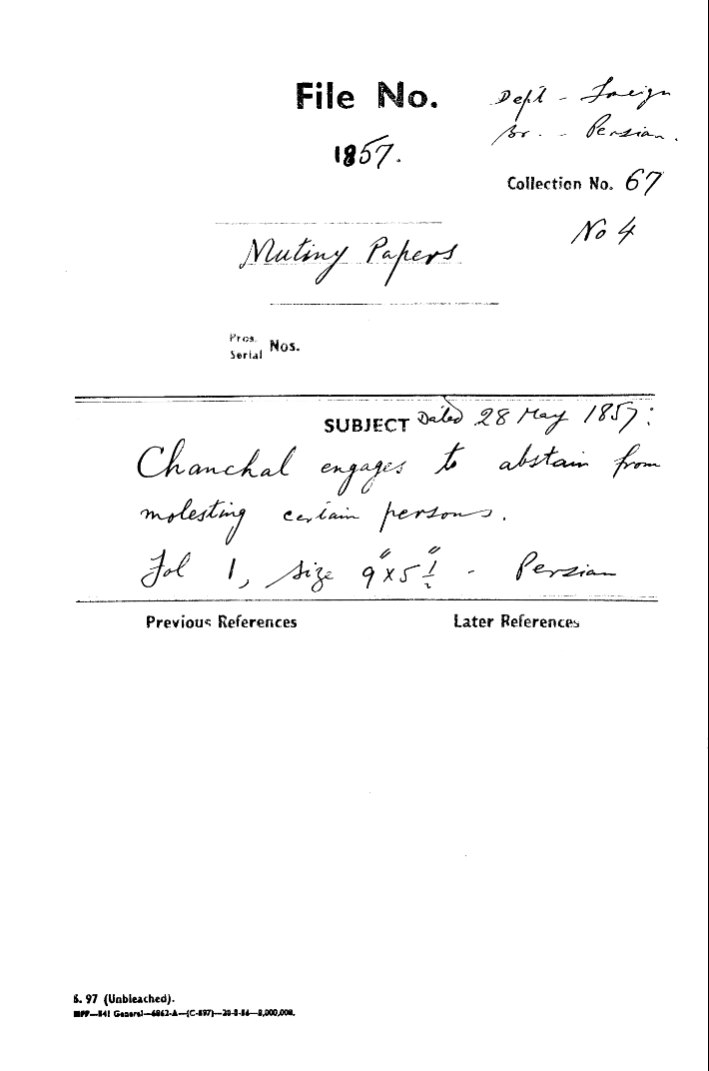 File No.
Dept - Foreign
Br. - Persian.
1857.
Collection No. 67
No 4
Mutiny Papers
Pros. Nos.
Serial
SUBJECT Dated 28 May 1857:
Chanchal engages to abstain from
molesting certain persons.
Fol 1, size 9" x 5½" - Persian
Previous References Later References
S. 97 (Unbleached).
MFP—841 General—6862-A—(C-897)—20-8-56—2,000,000.